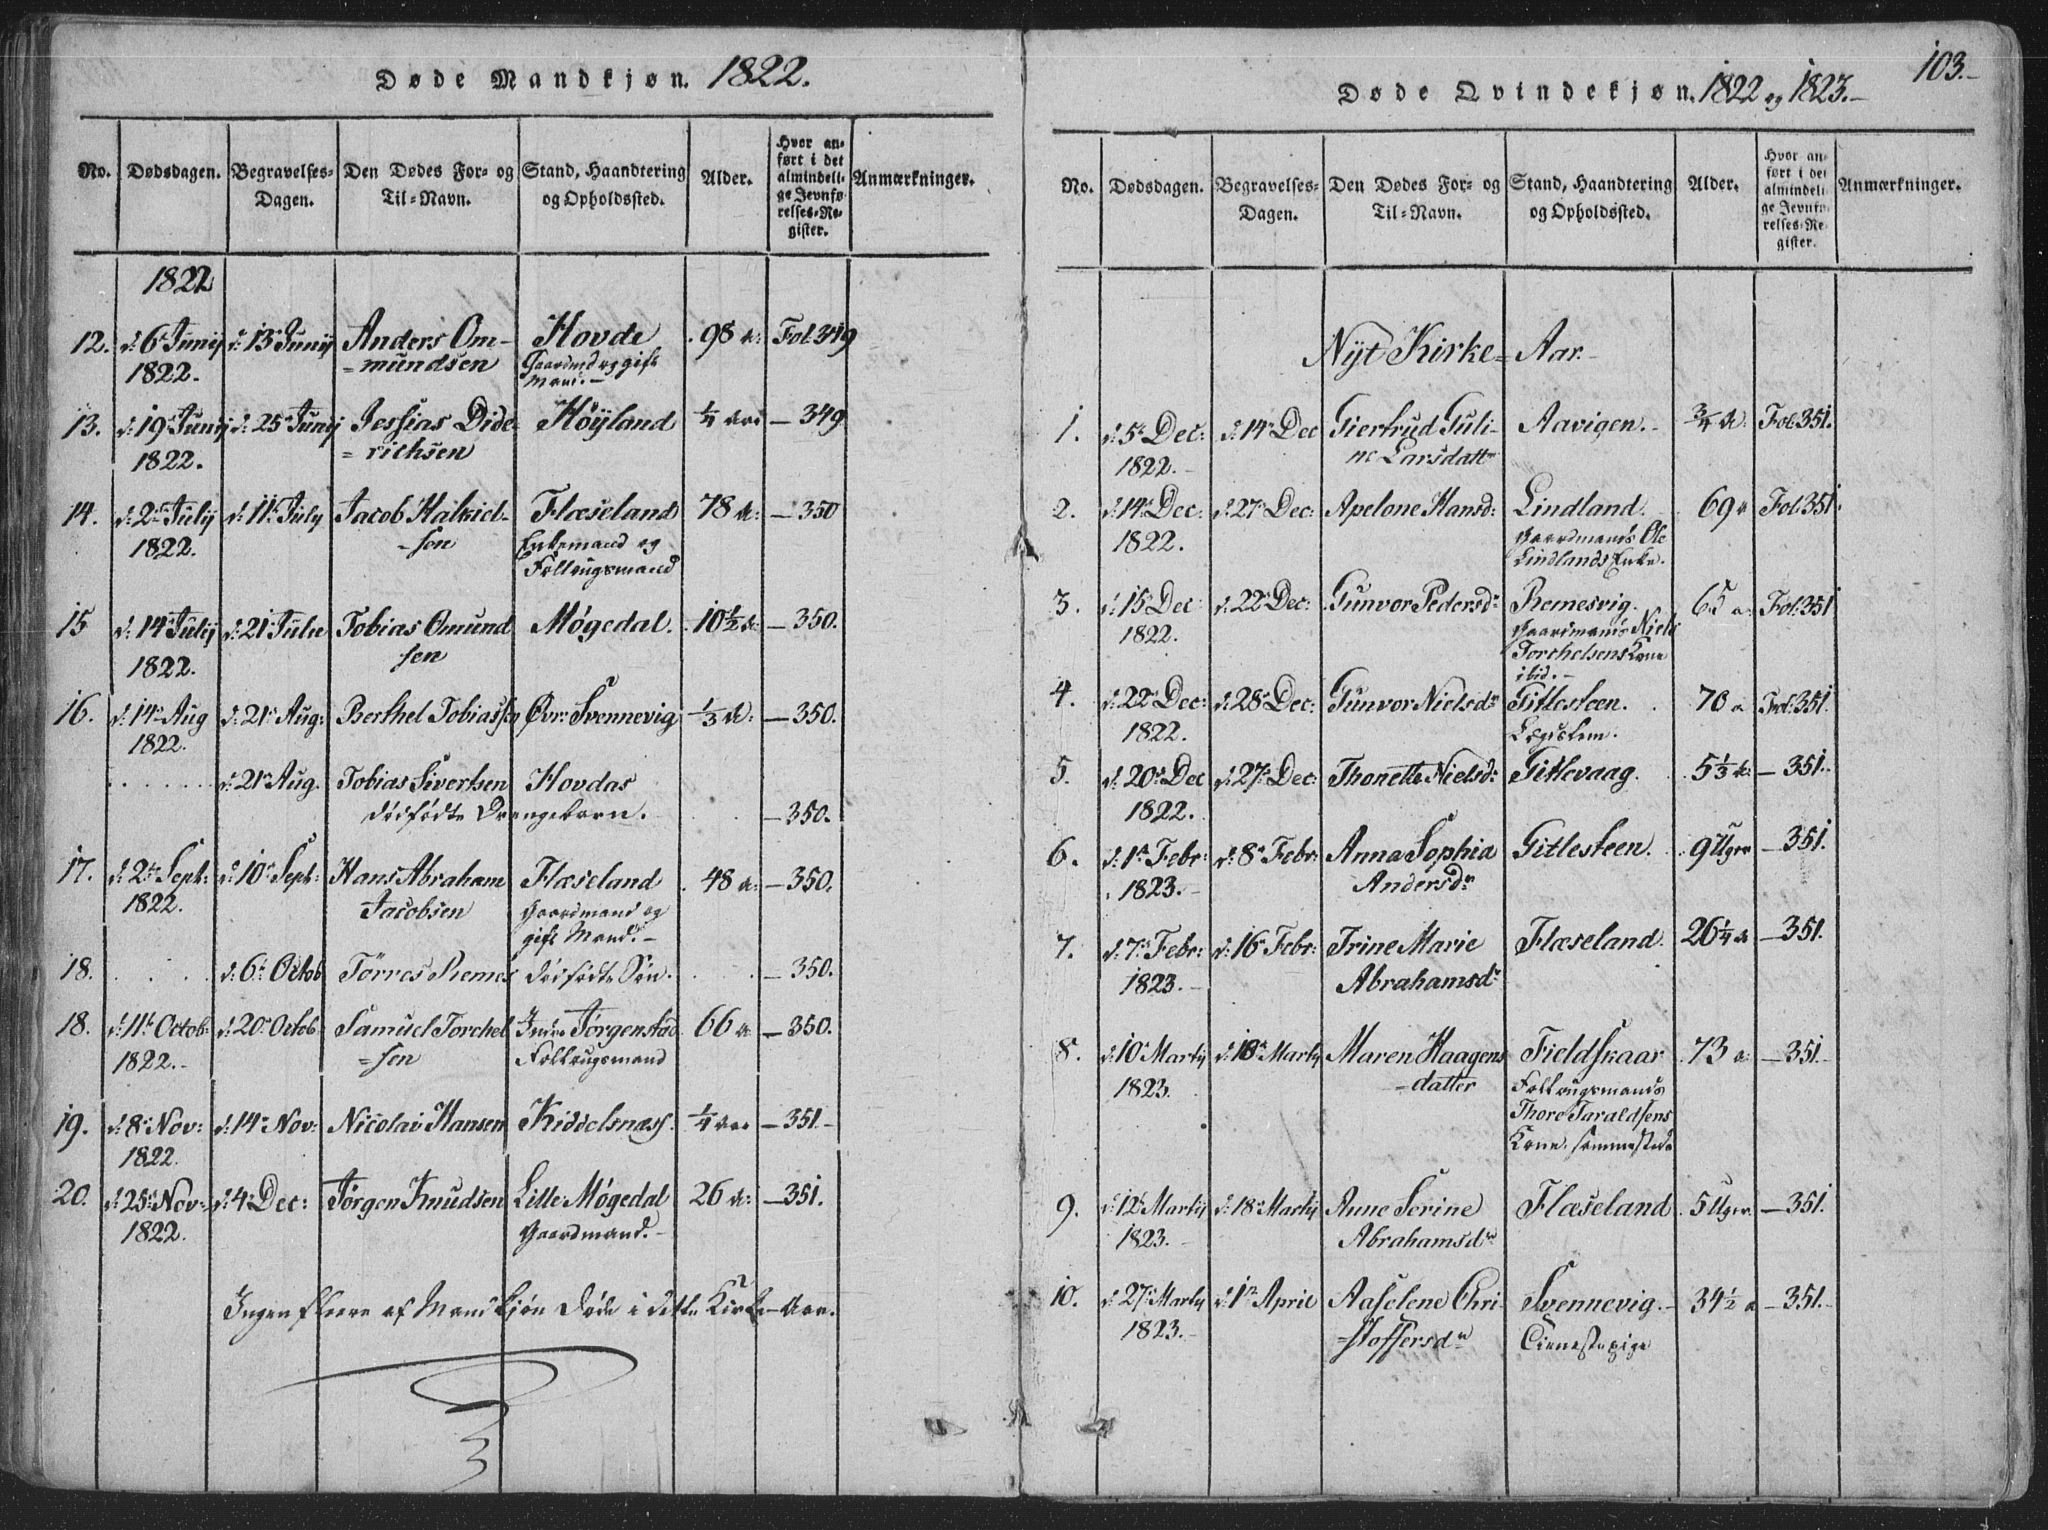 Døde Mandkjøn. 1822.
No. Dødsdagen. Begravelses-Dagen. Den Dødes For- og Til-Navn. Stand, Haandtering og Opholdssted. Alder. Hvor anført i det almindelige Jevnførelses-Register. Anmærkninger.
1822
12. d: 6 Junij d: 13 Junij Anders Om- Hovde 98 a: Fol 349
1822. =mundsen Gaardmd og gift
Mand.-
13. d: 19 Junij d: 25 Junij Jessias Dide- Høÿland 1/4 aar — 349
1822. =richsen
14. d: 2 Julij d: 11 July Jacob Halkiel- Flæseland 78 a: — 350
1822. =sen Enkemand og
Folkugsmand
15 d: 14 Julij d: 21 Julie Tobias Omund Møgedal. 10½ a: — 350.
1822. sen
16. d: 14 Aug d: 21 Aug: Berthel Tobiassen Øvr: Svennevig 1/3 A: — 350.
1822.
d: 21 Aug. Tobias Sivertsen Hovdas
dødfødte Drengebarn. — 350.
17. d: 2 Sept: d: 10 Sept: Hans Abraham Flæseland 48 a: — 350.
1822. Jacobsen Gaardmand og
gift Mand.-
18. d: 6 Octob Tørres Remes dødfødte Søn. — 350.
18. d: 11 Octob: d: 20 Octob: Samuel Torchel Indre Jørgenstad 66 a — 350.
1822.- =sen Folkugsmand
19. d: 8 Nov: d: 14 Nov: Nicolai Hansen Kiddelsnæss. 1/4 aar — 351.-
1822.
20. d: 25 Nov: d: 4 Dec: Jørgen Knudsen Lille Møgedal 26 A: — 351.
1822. Gaardmand.-
Ingen fleere af Mandkjøn døde i dette Kirke-Aar.
103.-
Døde Qvindekjøn. 1822 og 1823.-
No. Dødsdagen. Begravelses-Dagen. Den Dødes For- og Til-Navn. Stand, Haandtering og Opholdssted. Alder. Hvor anført i det almindelige Jevnførelses-Register. Anmærkninger.
Nÿt Kirke= Aar-
1. d: 5 Dec: d: 14 Dec Giertrud Guli- Aavigen.- 3/4 A: Fol: 351.
1822.- ne Larsdattr
2. d: 14 Dec: d: 27 Dec: Apelone Hansd: Lindland. 69 a Fol: 351.
1822. Gaardmands Ole
Lindlands Enke.
3. d: 15 Dec: d: 22 Dec: Gunvor Pedersdr Remesvig. 65 a Fol: 351
1822. Gaardmands Niels
Torchelsens Kone
ibid.-
4. d: 22 Dec: d: 28 Dec: Gunvor Nielsdr Gitlesteen. 70 a Fol: 351.
1822. Lægdslem.
5. d: 20 Dec d: 27 Dec: Thonette Nielsd: Gitlevaag. 5 1/3 A: — 351.
1822.
6. d: 1 Febr: d: 8 Febr: Anna Sophia Gitlesteen. 9 Uger — 351.
1823.- Andersdr
7. d: 7 Febr: d: 16 Febr: Trine Marie Flæseland. 26 1/4 a — 351.
1823.- Abrahamsdr
8. d: 10 Martij d: 18 Martij Maren Haagens Fieldskaar 73 a — 351.-
1823. =datter Folkugsmands
Thore Taraldsens
Kone. sammesteds
9. d: 12 Martij d: 18 Martij Anne Serine Flæseland 5 Uger — 351.
1823. Abrahamsdr
10. d: 27 Martij d: 1 April Aaselene Chri- Svennevig.- 34½ a — 351.-
1823.- =stoffersdr Tienestepige